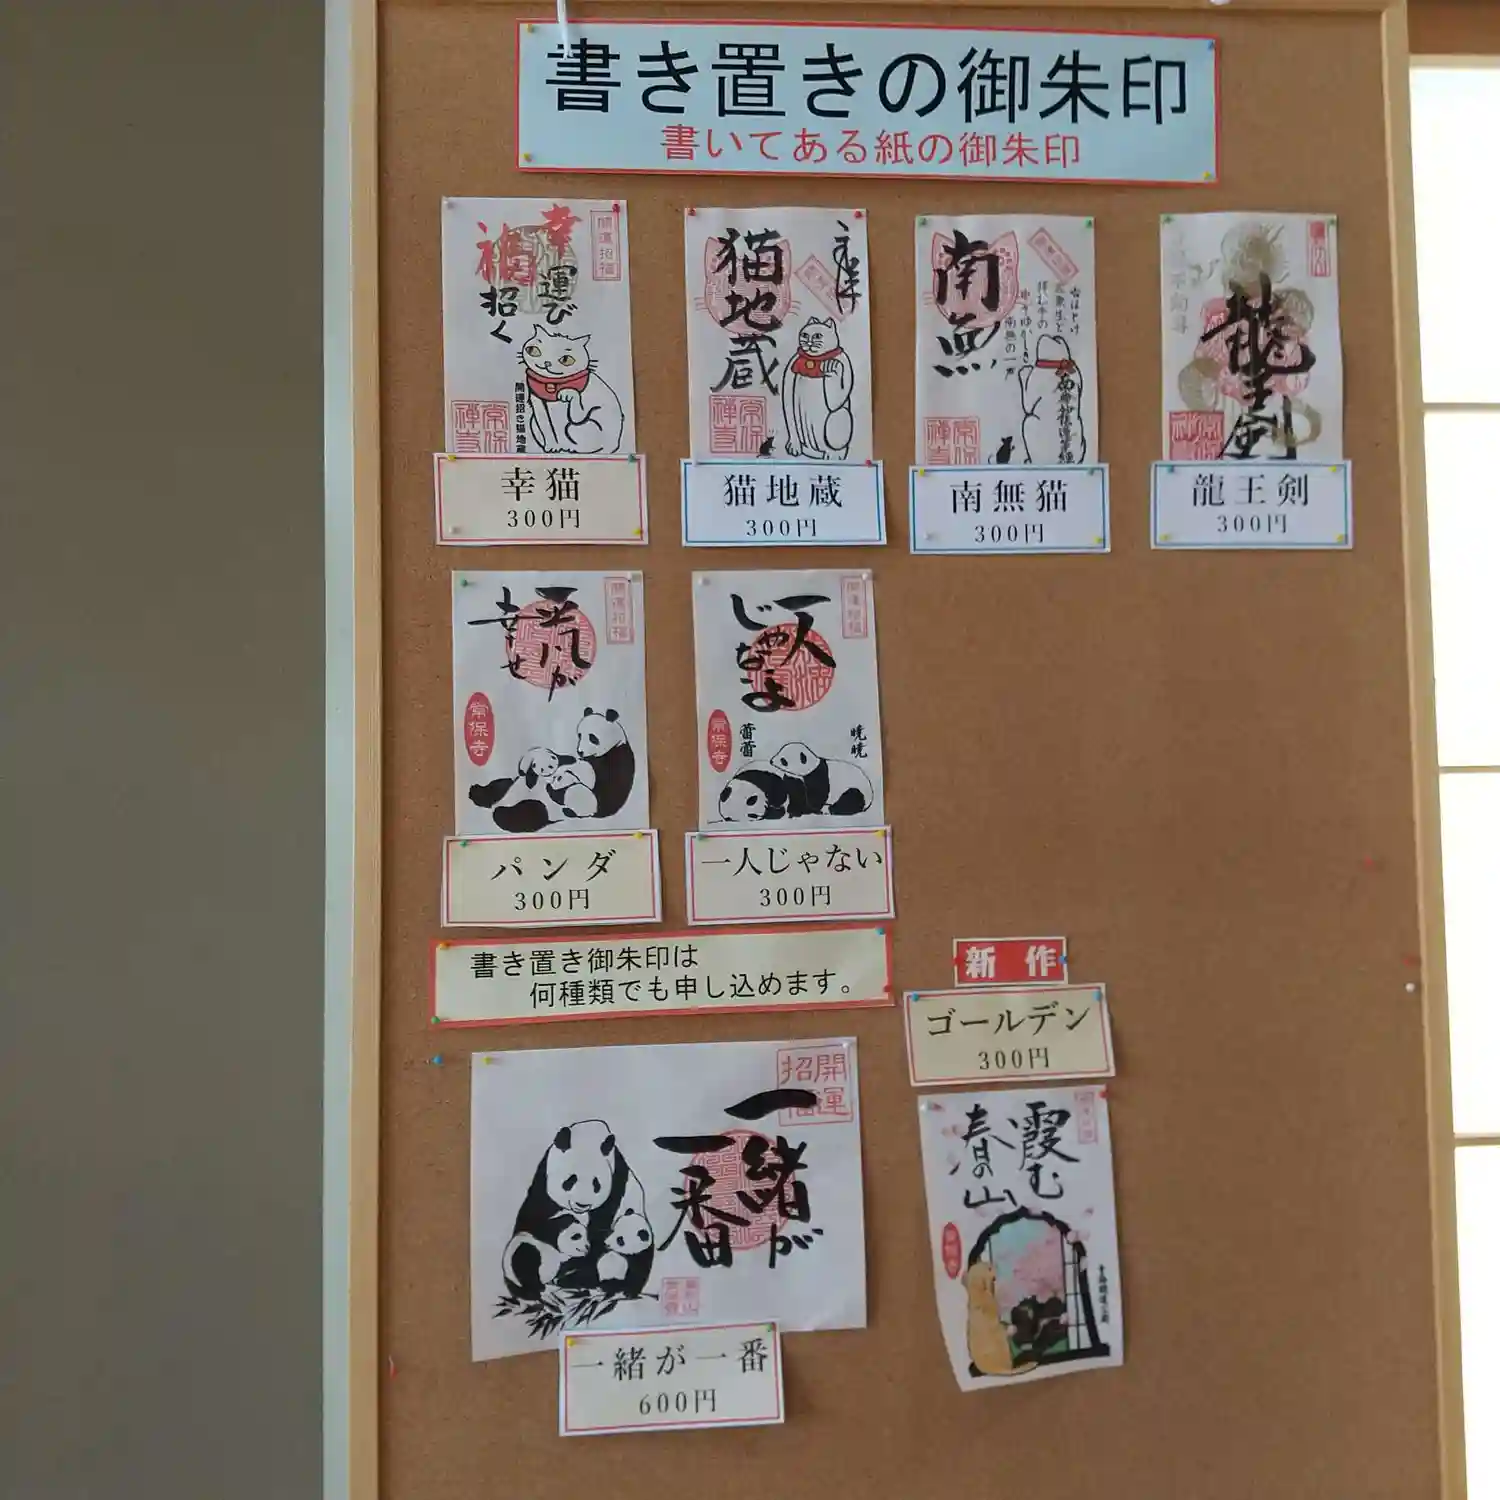 書き置きの御朱印
書いてある紙の御朱印
幸
福
運び
招く
開運招福
開運招き猫地蔵
常保禅寺
幸猫
300円
猫地蔵
常保禅寺
猫地蔵
300円
南無
常保禅寺
南無猫
300円
龍王剣
龍王剣
300円
開運招福
平凡が
幸せ
常保寺
パンダ
300円
開運招福
一人
じゃないよ
常保寺
蕾蕾
暁暁
一人じゃない
300円
書き置き御朱印は
何種類でも申し込めます。
新作
ゴールデン
300円
霞む
春の山
開運招福
一緒が
一番
一緒が一番
600円